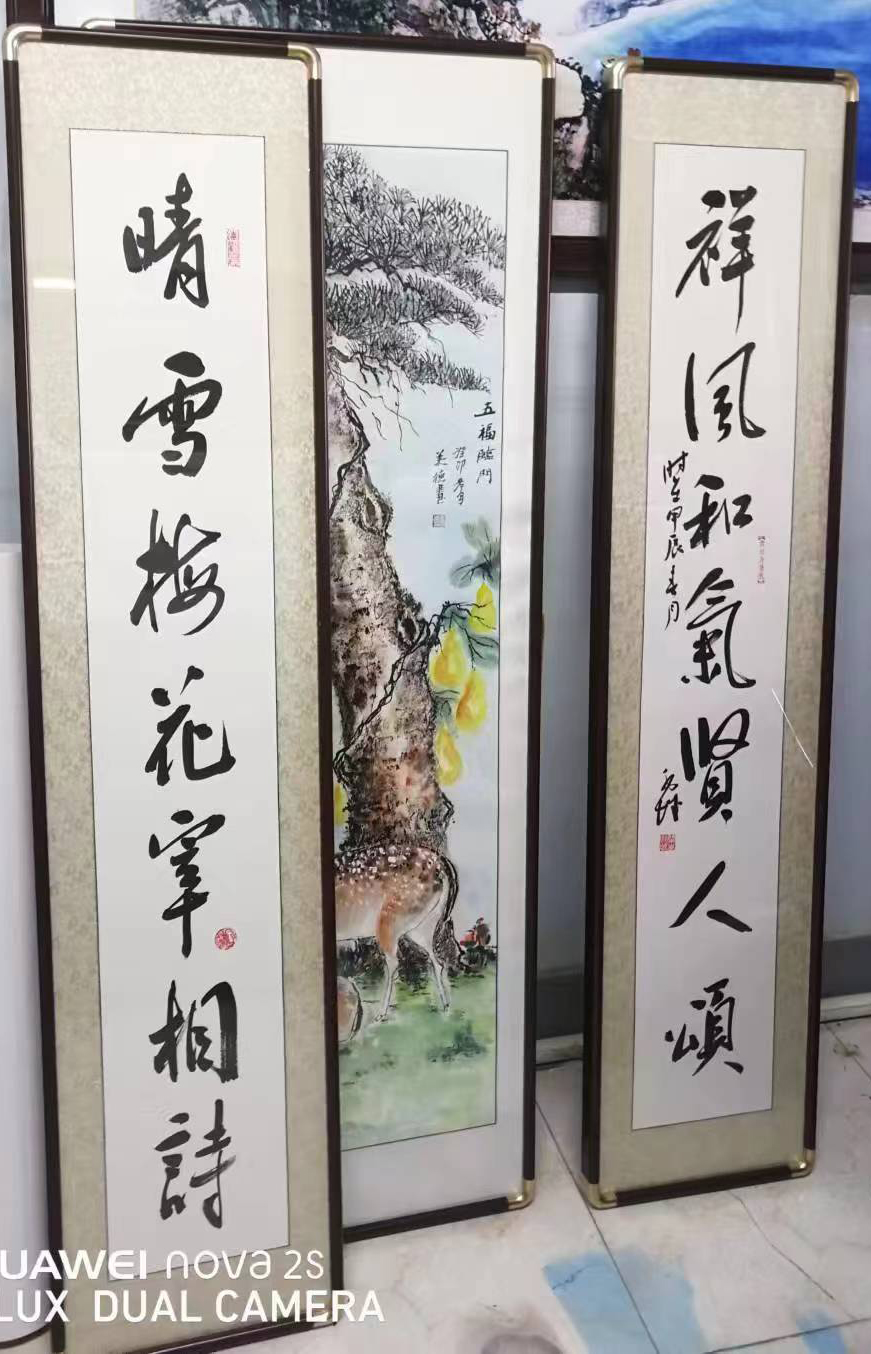 晴雪梅花宰相詩
五福臨門
癸卯春月
美德畫
祥風和氣賢人頌
時在甲辰春月
UAWEI nova 2S
LUX DUAL CAMERA